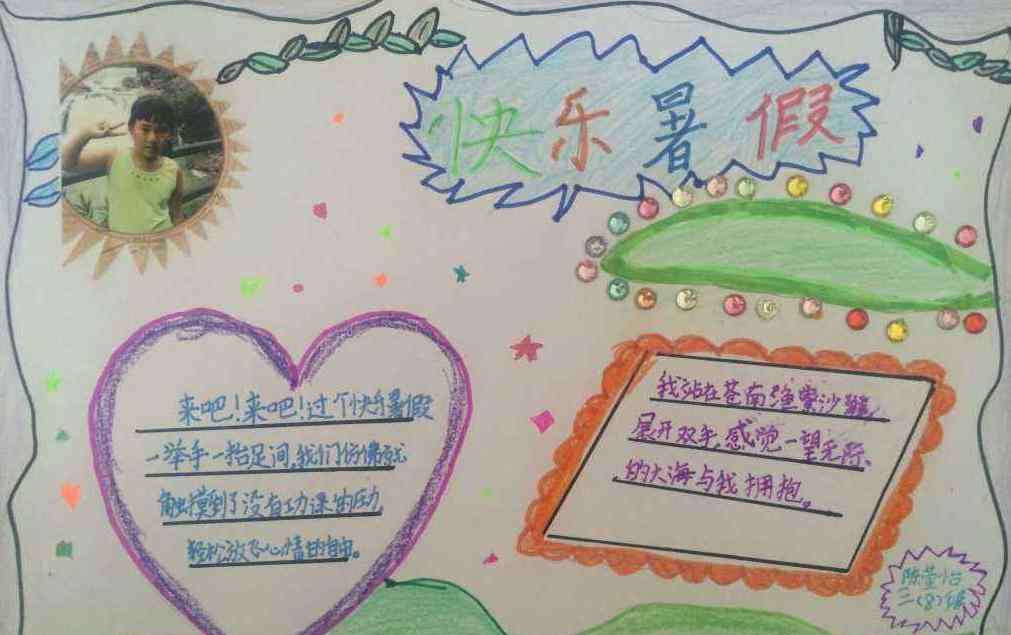 快乐暑假
来吧！来吧！过个快乐暑假
一举手一抬足间，我们仿佛就
触摸到了没有功课的压力，
轻松放飞心情的自由。
我站在苍南渔寮沙滩，
展开双手，感觉一望无际
的大海与我拥抱。
陈莹怡
三（8）班